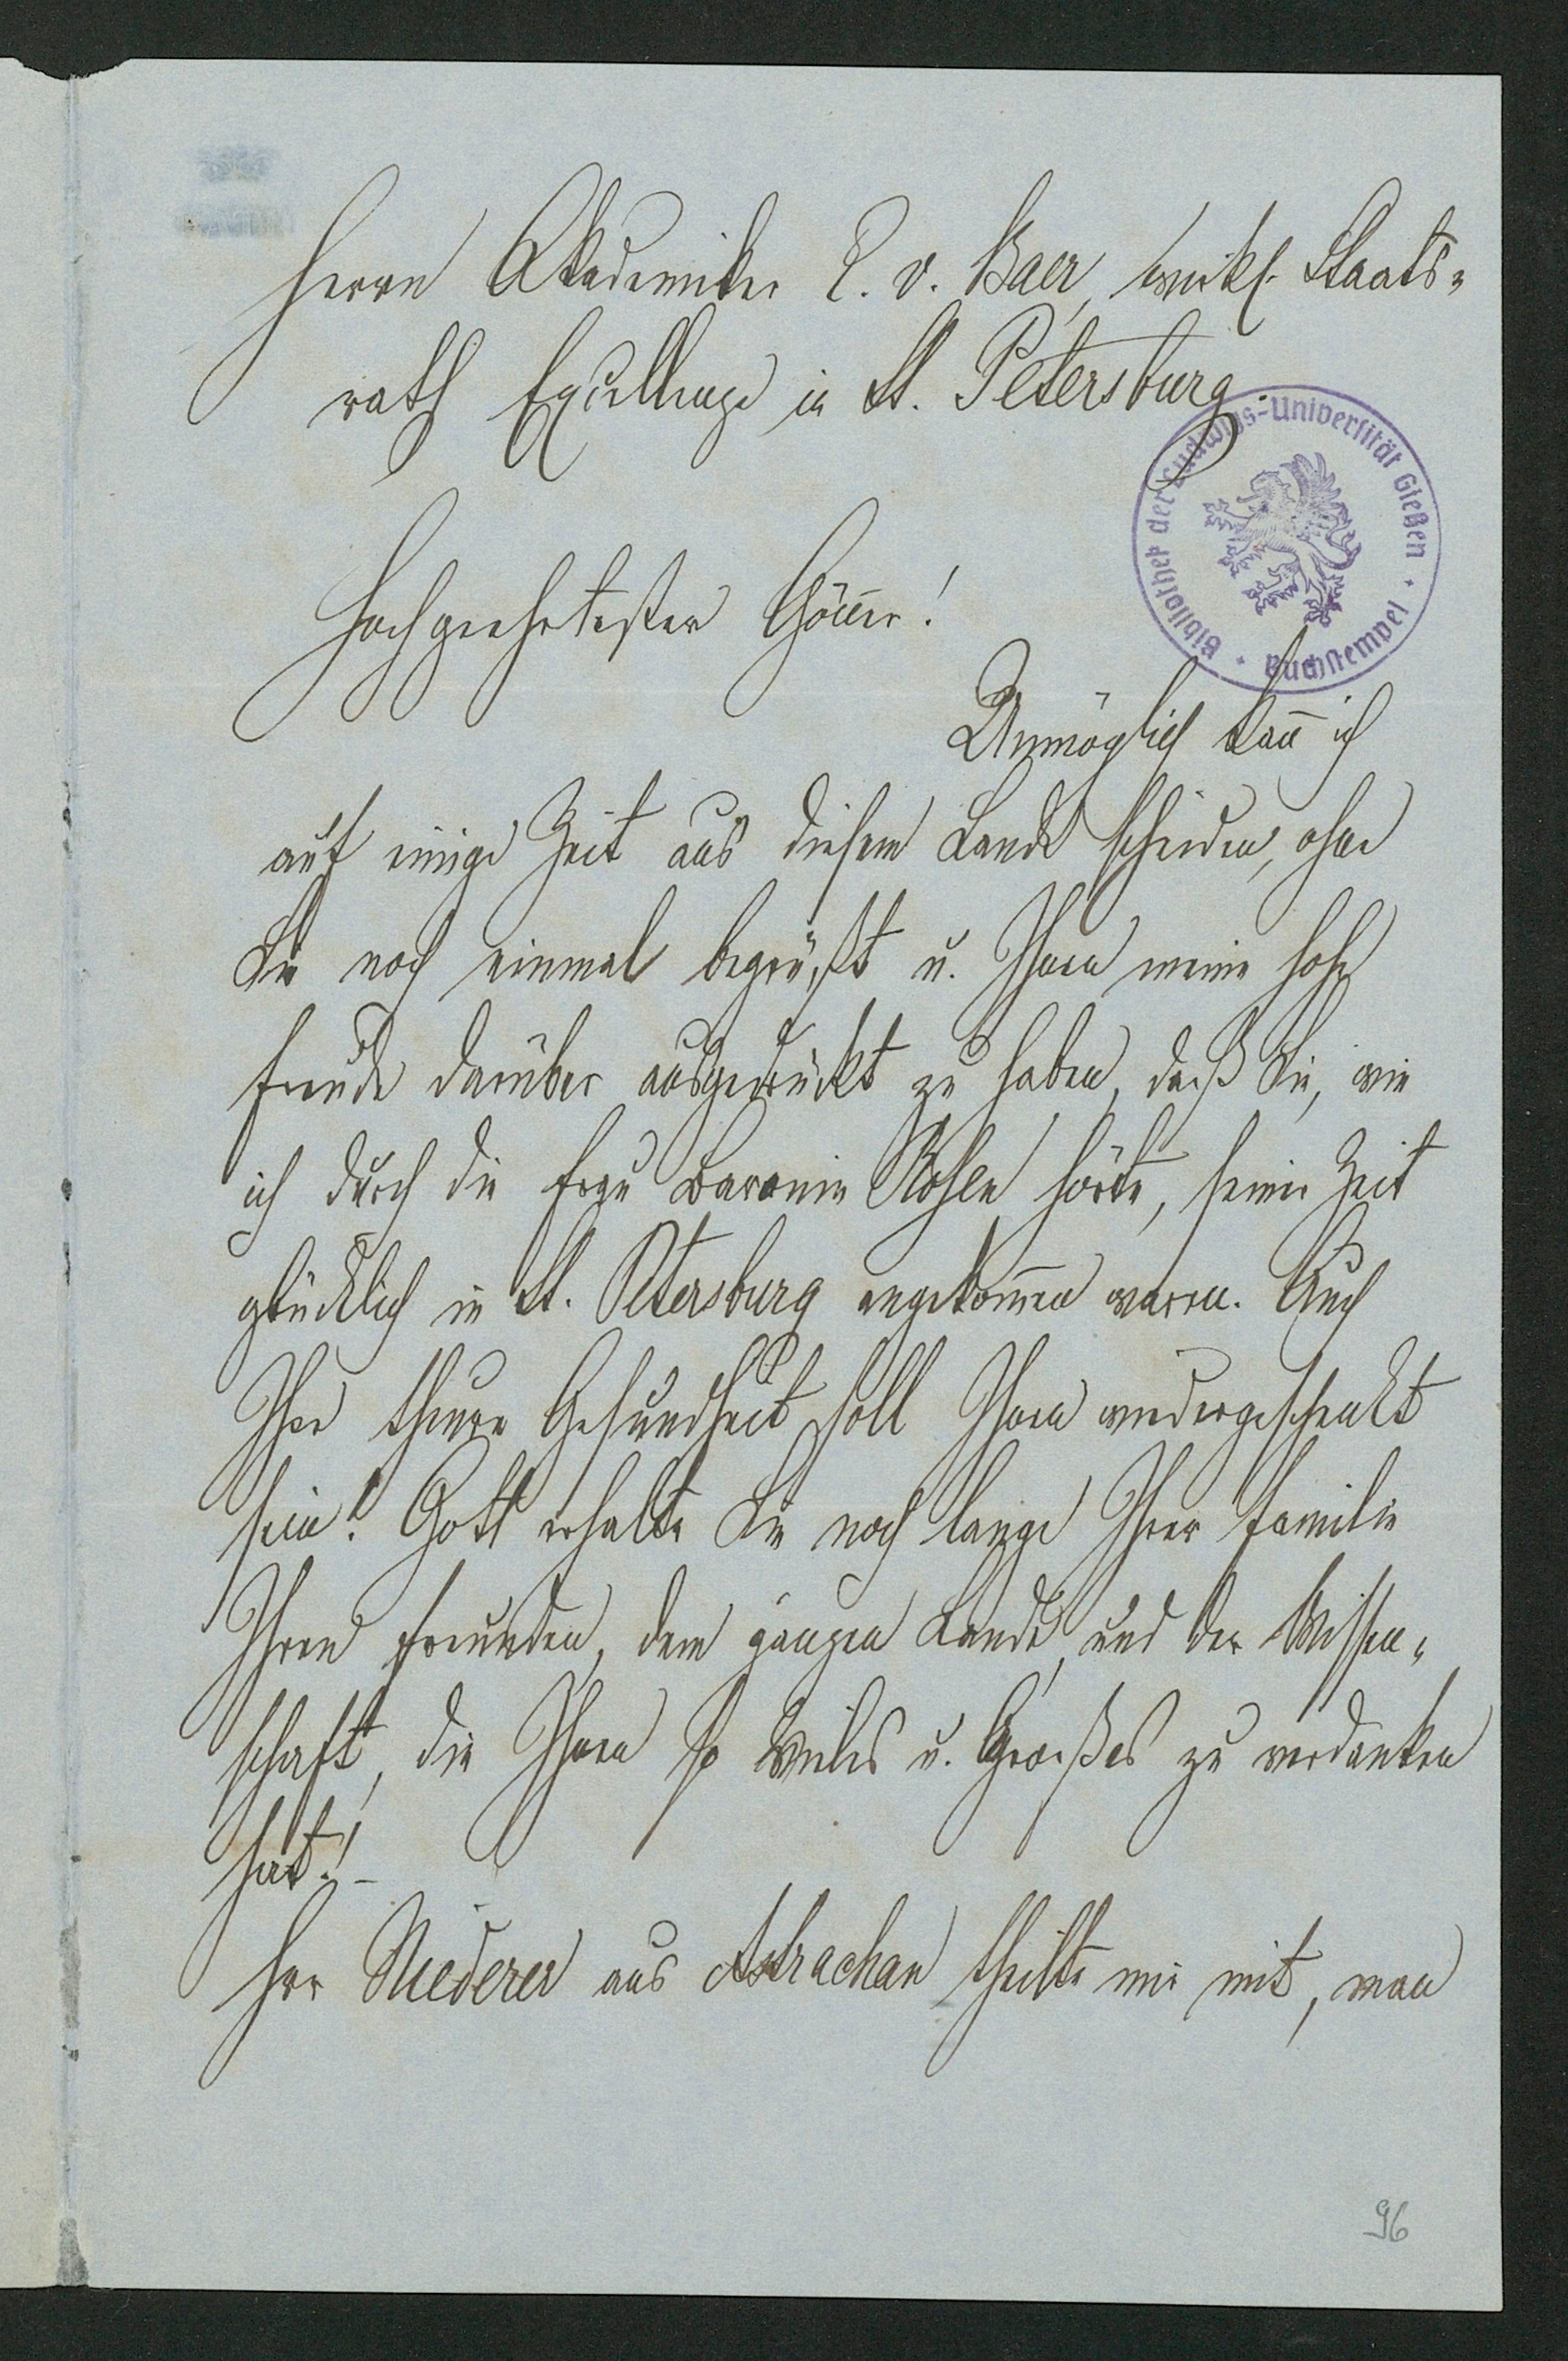 Herrn Akademiker E. v. Baer, wirkl. Staats-
rath Excellenze in St. Petersburg.
Bibliothek der Ludwigs-Universität Gießen · Buchstempel ·
Hochgeehrtester Gön̄er!
Unmöglich kan̄ ich
auf einige Zeit aus diesem Lande scheiden, ohne
Sie noch einmal begrüßt u. Ihnen meine hohe
Freude darüber ausgedrückt zu haben, daß Sie, wie
ich durch die Frau Baronin hörte, seiner Zeit
glücklich in St. Petersburg angekom̄en waren. Auch
Ihre theure Gesundheit soll Ihnen wiedergeschenkt
sein! Gott erhalte Sie noch lange Ihrer Familie
Ihren Freunden, dem ganzen Lande, und der Wissen-
schaft, die Ihnen so Vieles u. Großes zu verdanken
hat! –
Herr Niederer aus Astrachan theilte mir mit, man
96